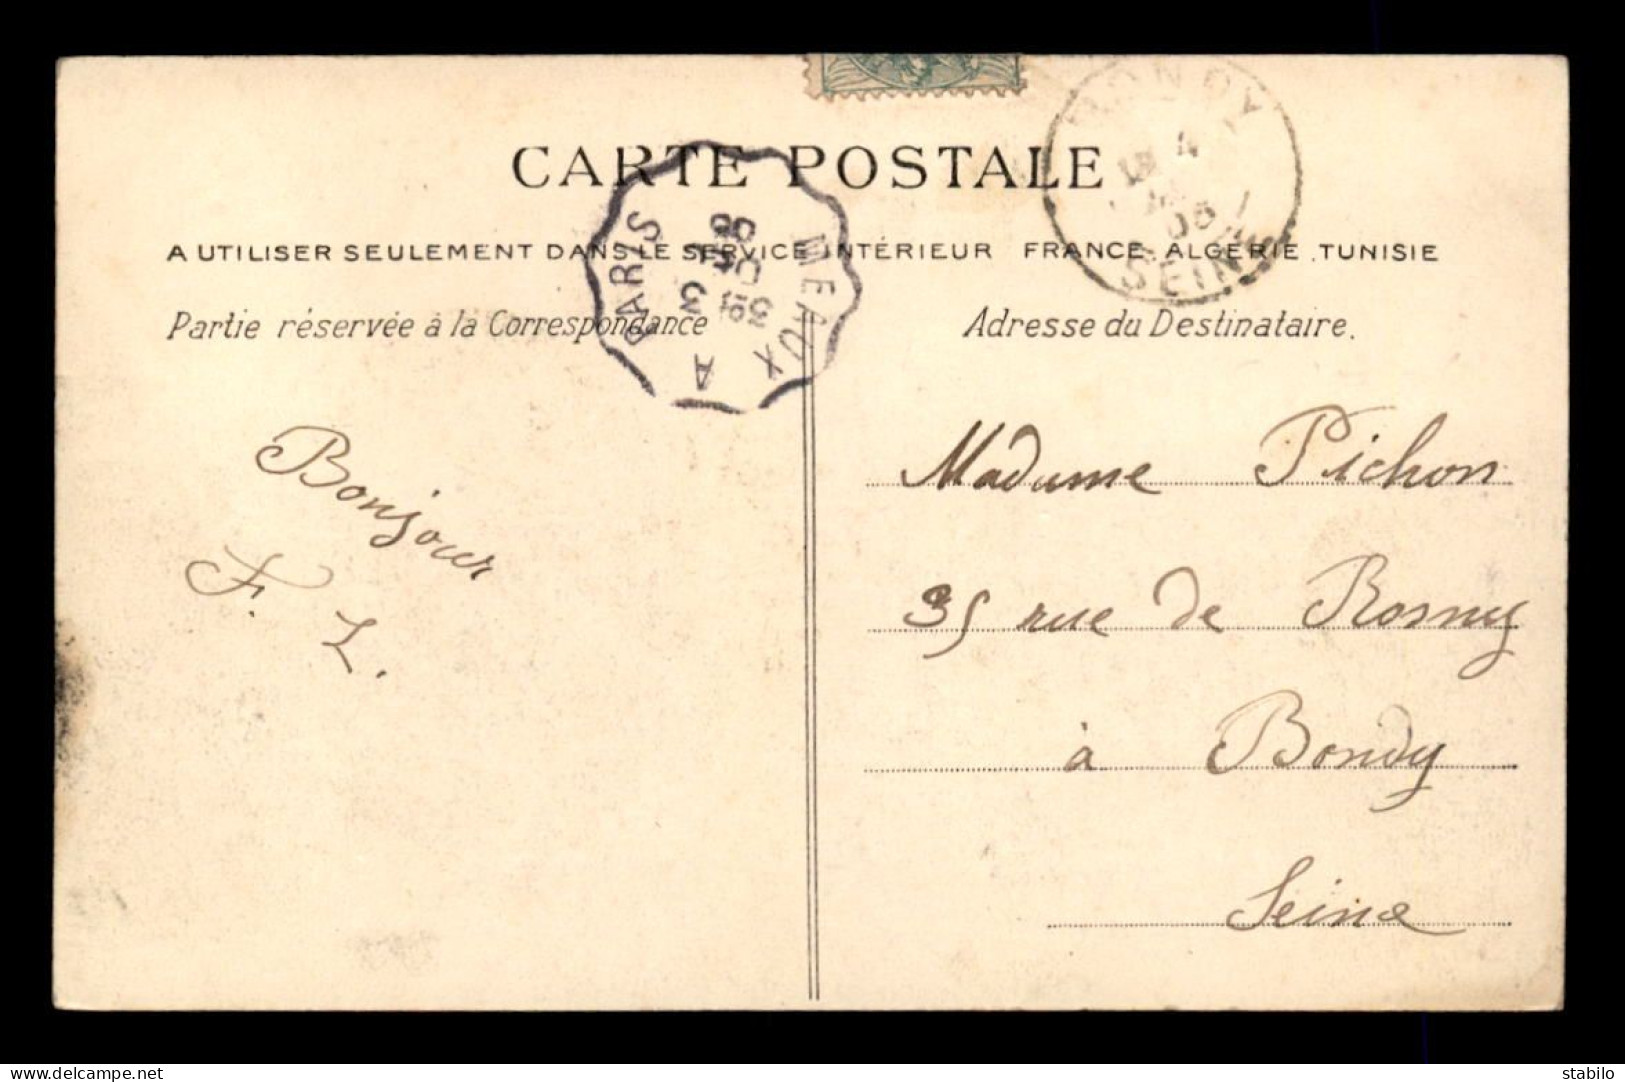 CARTE POSTALE
A UTILISER SEULEMENT DANS LE SERVICE INTÉRIEUR FRANCE ALGÉRIE . TUNISIE
Partie réservée à la Correspondance
Adresse du Destinataire.
PARIS A MEAUX
BONDY
SEINE
Bonjour
F. L.
Madame Pichon
35 rue de Rosny
à Bondy
Seine
www.delcampe.net
stabilo